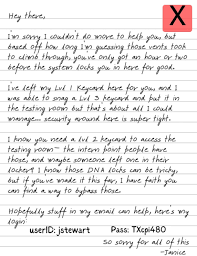 Hey there,
X
I'm sorry I couldn't do more to help you, but
based off how long I'm guessing those vents took
to climb through, you've only got an hour or two
before the system locks you in here for good.
I've left my Lvl 1 Keycard here for you, and I
was able to snag a Lvl 3 keycard and put it in
the testing room but that's about all I could
manage— security around here is super tight.
I know you need a Lvl 2 keycard to access the
testing room— the intern point people have
those, and maybe someone left one in their
locker? I know those DNA locks can be tricky,
but if you've made it this far, I have faith you
can find a way to bypass those.
Hopefully stuff in my email can help, here's my
login:
userID: jstewart Pass: TXcpi480
So sorry for all of this
-Janice